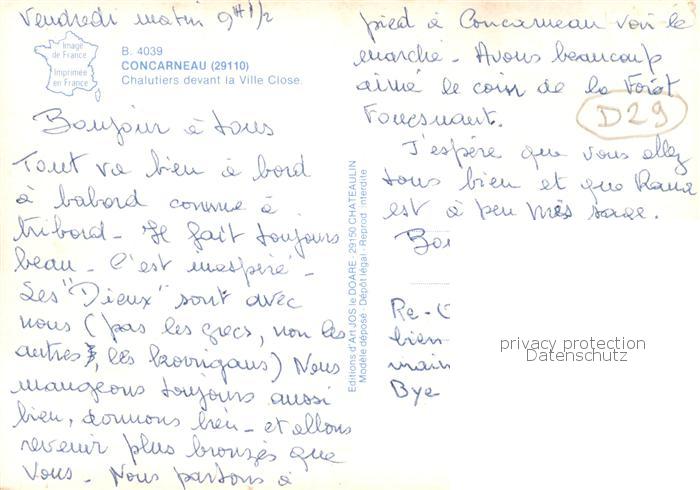 Vendredi matin 9H 1/2
Image
de France
Imprimée
en France
B. 4039
CONCARNEAU (29110)
Chalutiers devant la Ville Close.
Bonjour à tous
Tout va bien à bord
à babord comme à
tribord - Il fait toujours
beau - C'est inespéré -
Les "Dieux" sont avec
nous (pas les grecs, non les
autres, les korrigans) Nous
mangeons toujours aussi
bien, dormons bien - et allons
revenir plus bronzés que
vous - Nous partons à
Editions d'Art JOS le DOARE - 29150 CHATEAULIN
Modèle déposé - Dépôt légal - Reprod. interdite
pied à Concarneau voir le
marché - Avons beaucoup
aimé le coin de la Forêt
Fouesnant.
D29
J'espère que vous allez
tous bien et que
est à peu près sage.
Bon
Re-
bien
main
Bye
privacy protection
Datenschutz